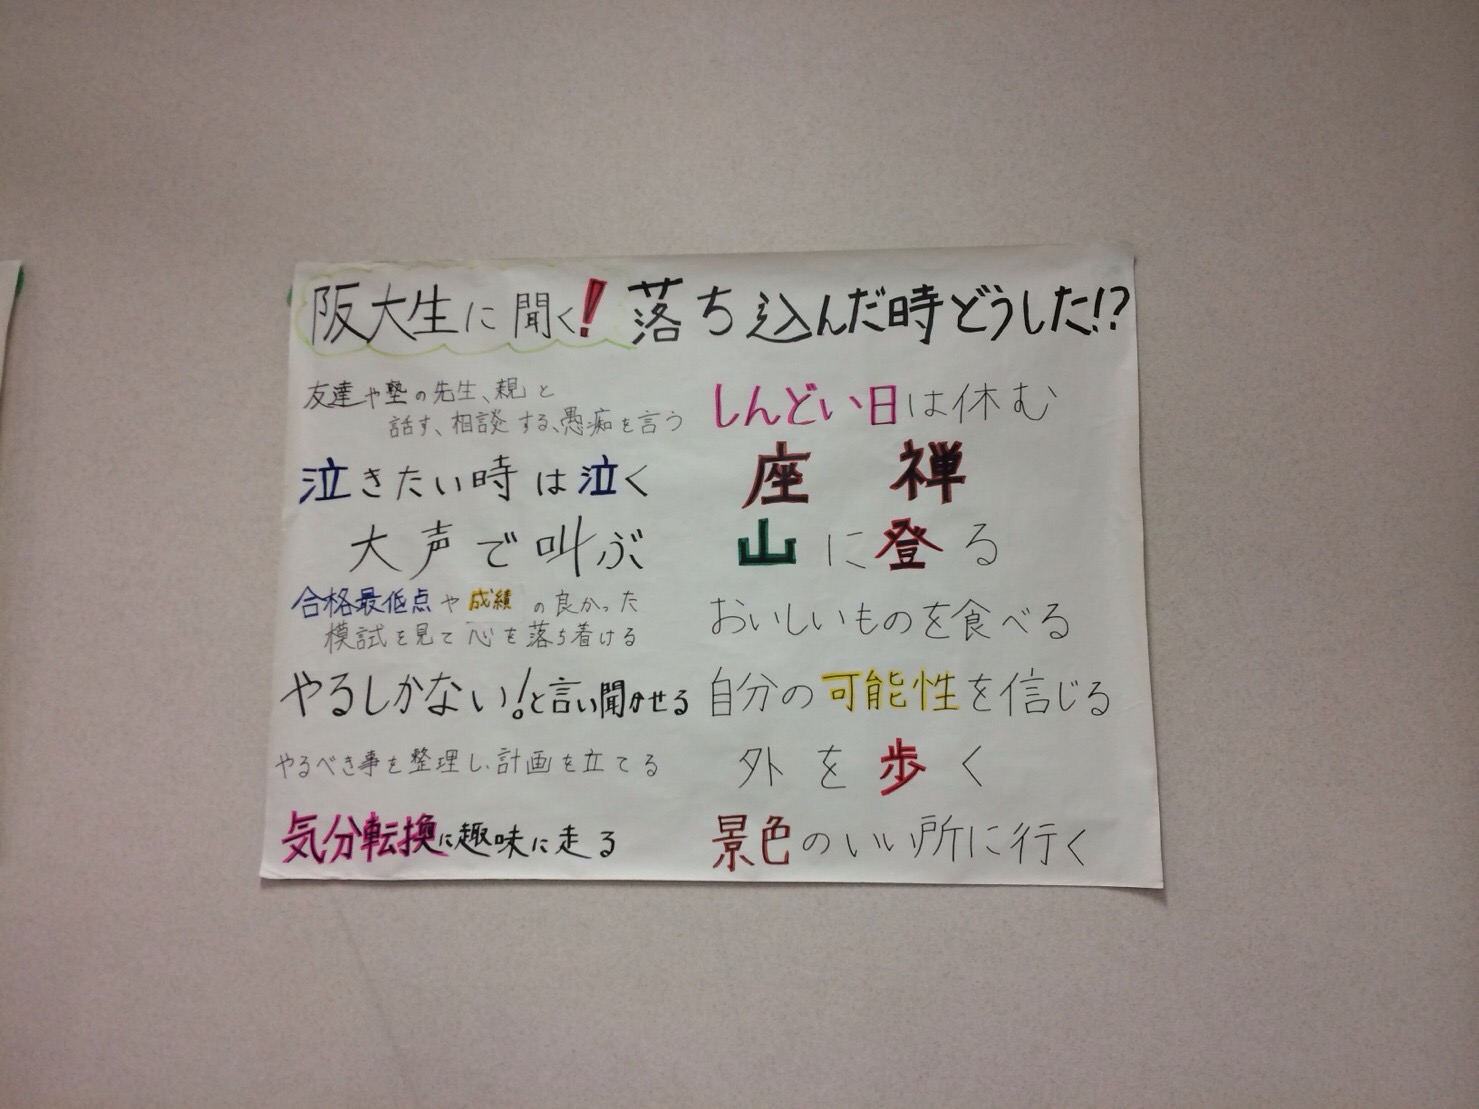 阪大生に聞く! 落ち込んだ時どうした!?
友達や塾の先生、親と
話す、相談する、愚痴を言う
泣きたい時は泣く
大声で叫ぶ
合格最低点や成績の良かった
模試を見て心を落ち着ける
やるしかない!と言い聞かせる
やるべき事を整理し、計画を立てる
気分転換に趣味に走る
しんどい日は休む
座禅
山に登る
おいしいものを食べる
自分の可能性を信じる
外を歩く
景色のいい所に行く